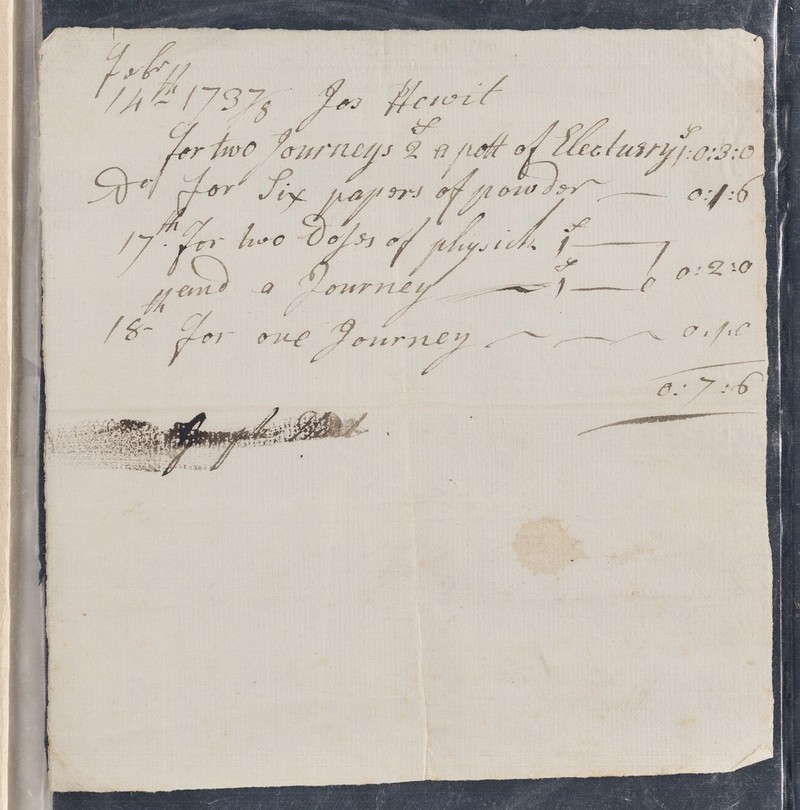 Febry
14th 1737/8 Jos Hewit
for two Journeys 2s a pott of Electurry 1s: 0:3:0
Do for Six papers of powder — 0:1:6
17th for two Doses of physick 1s —
and a Journey — 1s — 0 0:2:0
18th for one Journey — 0:1:0
0:7:6